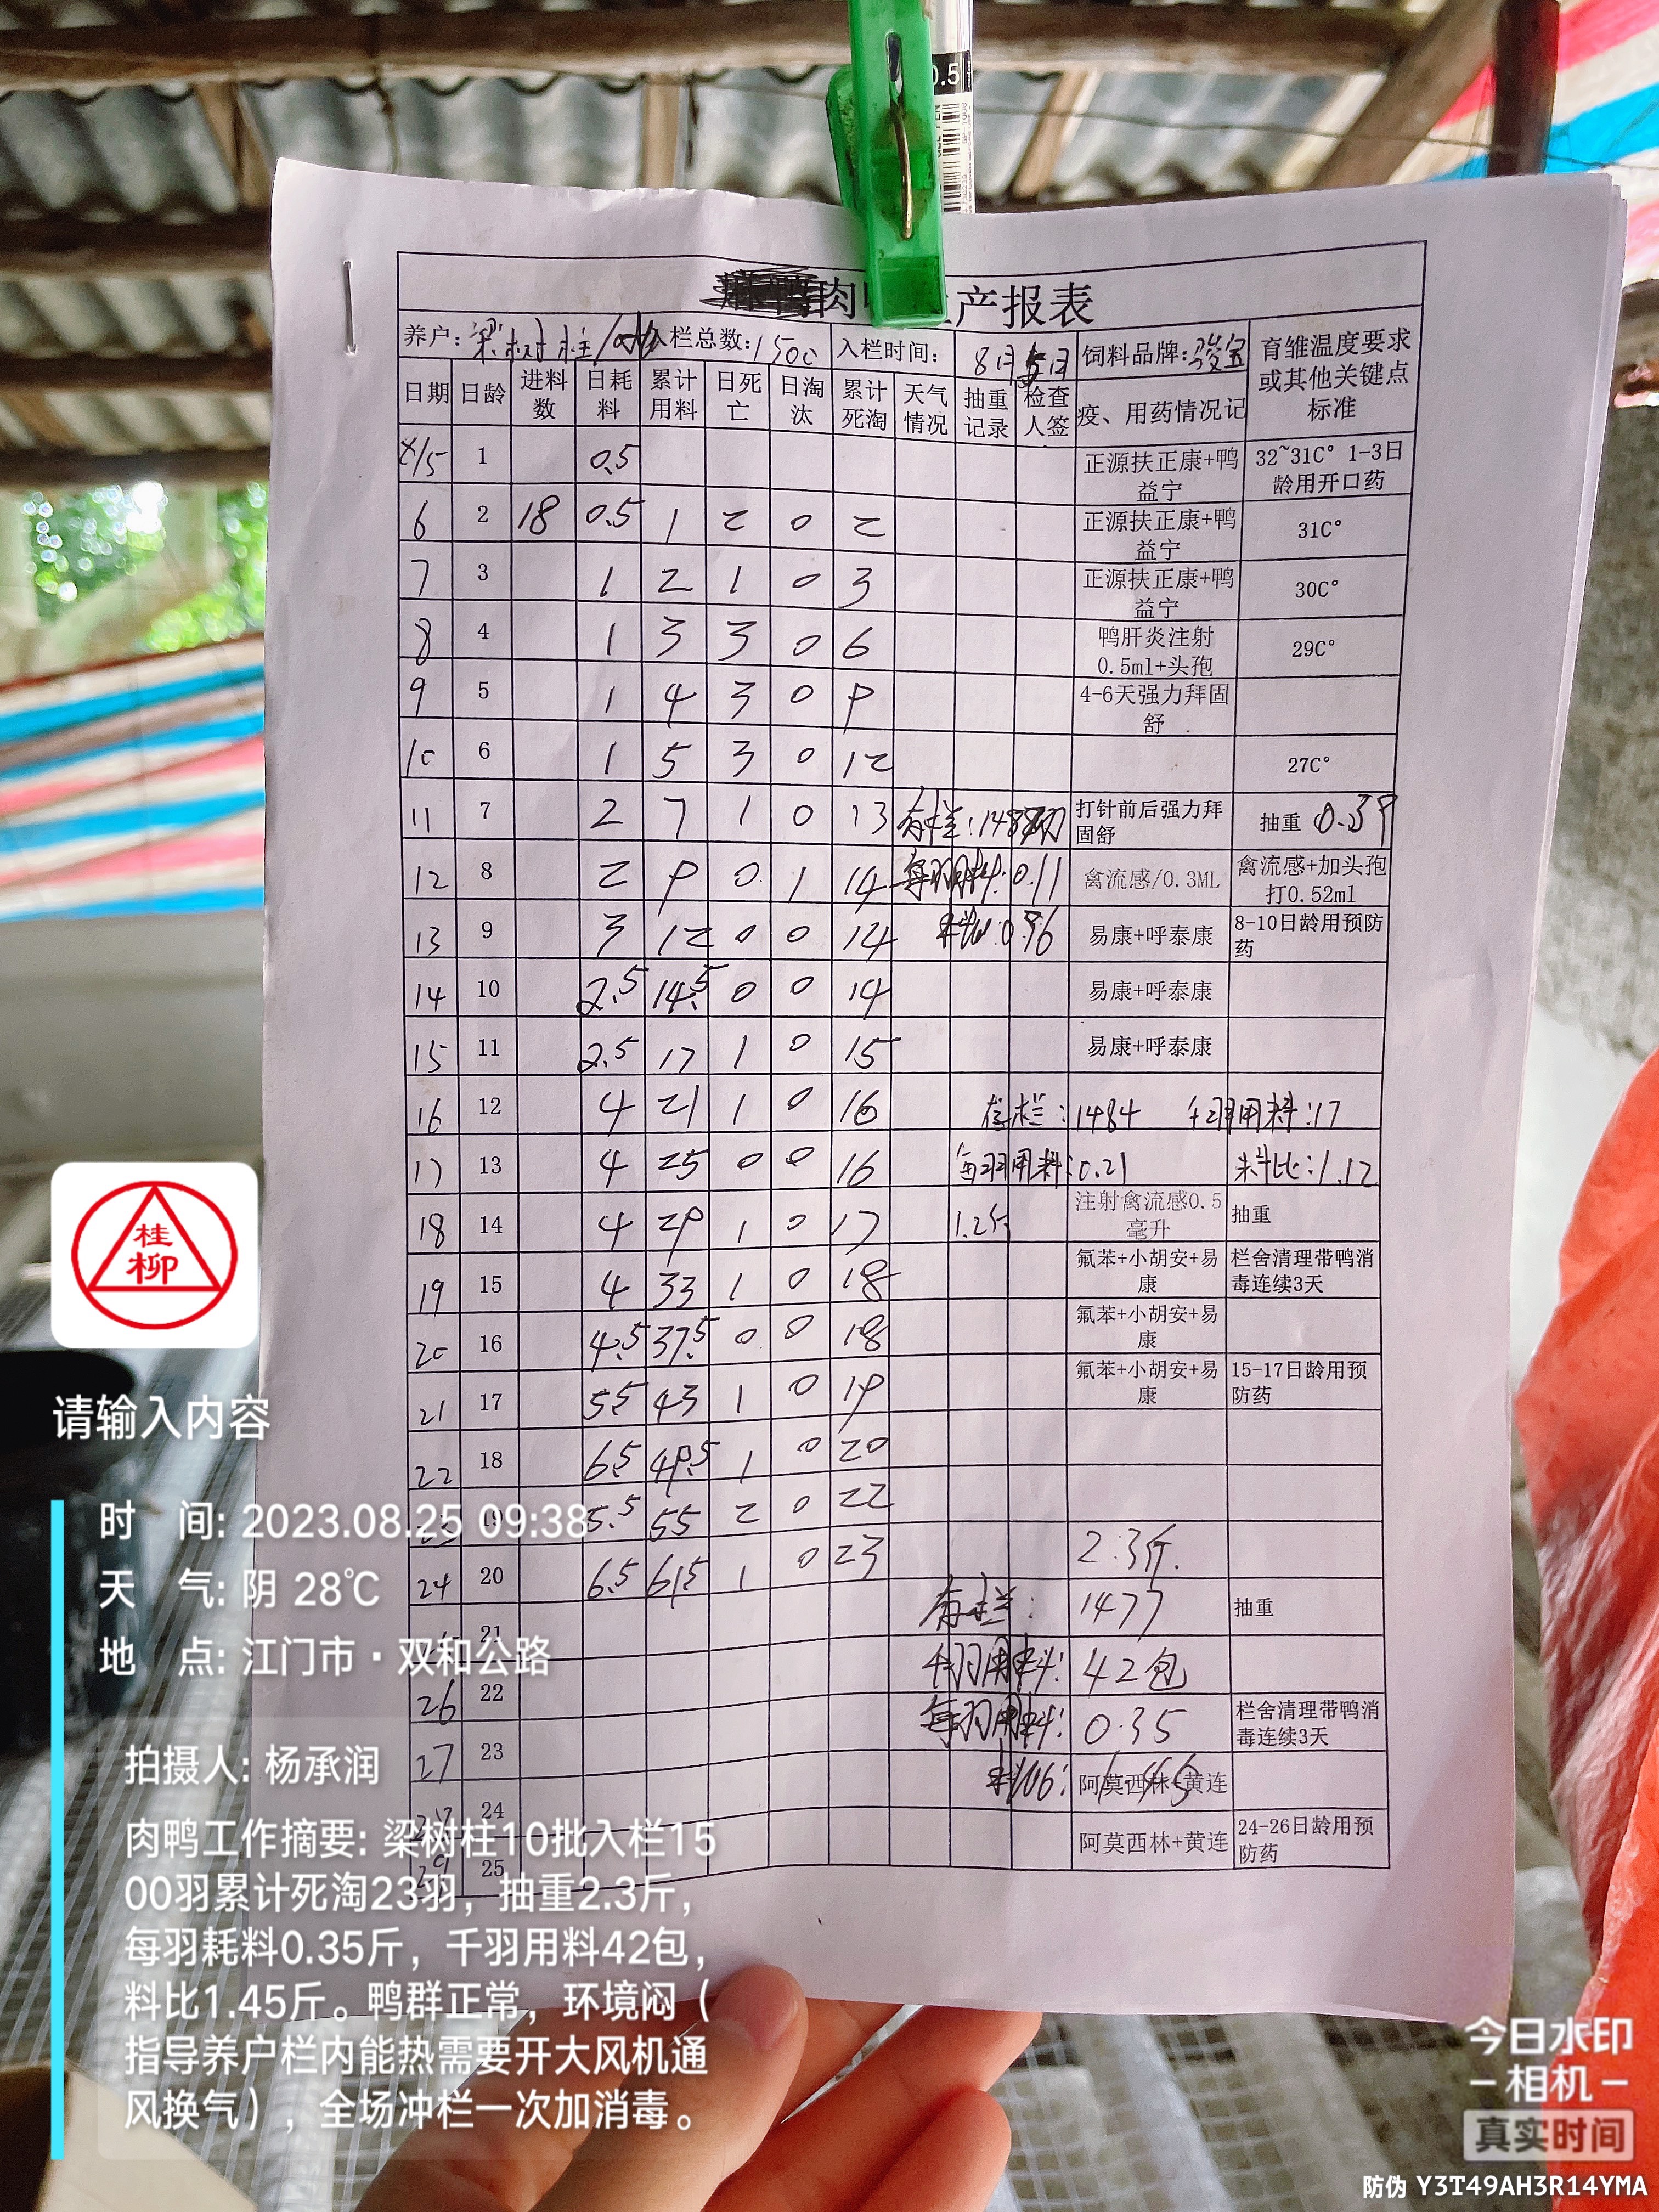 0.5
肉 产报表
养户: 梁树柱 入栏总数: 1500 入栏时间: 8月5日 饲料品牌: 骏宝 育雏温度要求或其他关键点标准
日期 日龄 进料数 日耗料 累计用料 日死亡 日淘汰 累计死淘 天气情况 抽重记录 检查人签 疫、用药情况记
8/5 1 0.5 正源扶正康+鸭益宁 32~31C° 1-3日龄用开口药
6 2 18 0.5 1 2 0 2 正源扶正康+鸭益宁 31C°
7 3 1 2 1 0 3 正源扶正康+鸭益宁 30C°
8 4 1 3 3 0 6 鸭肝炎注射0.5ml+头孢 29C°
9 5 1 4 3 0 9 4-6天强力拜固舒
10 6 1 5 3 0 12 27C°
11 7 2 7 1 0 13 存栏: 打针前后强力拜固舒 抽重 0.39
12 8 2 9 0 1 14 每羽用料:0.11 禽流感/0.3ML 禽流感+加头孢打0.52ml
13 9 3 12 0 0 14 料比: 易康+呼泰康 8-10日龄用预防药
14 10 2.5 14.5 0 0 14 易康+呼泰康
15 11 2.5 17 1 0 15 易康+呼泰康
16 12 4 21 1 0 16 存栏:1484 千羽用料:17
17 13 4 25 0 0 16 每羽用料:0.21 料比:1.12
18 14 4 29 1 0 17 1.2斤 注射禽流感0.5毫升 抽重
19 15 4 33 1 0 18 氟苯+小胡安+易康 栏舍清理带鸭消毒连续3天
20 16 4.5 37.5 0 0 18 氟苯+小胡安+易康
21 17 5.5 43 1 0 19 氟苯+小胡安+易康 15-17日龄用预防药
22 18 6.5 49.5 1 0 20
23 19 5.5 55 2 0 22
24 20 6.5 61.5 1 0 23 2.3斤.
21 存栏: 1477 抽重
26 22 千羽用料: 42包
27 23 每羽用料: 0.35 栏舍清理带鸭消毒连续3天
24 料比: 1.45 阿莫西林+黄连
29 25 阿莫西林+黄连 24-26日龄用预防药
桂柳
请输入内容
时 间: 2023.08.25 09:38
天 气: 阴 28℃
地 点: 江门市·双和公路
拍摄人: 杨承润
肉鸭工作摘要: 梁树柱10批入栏15
00羽累计死淘23羽，抽重2.3斤，
每羽耗料0.35斤，千羽用料42包，
料比1.45斤。鸭群正常，环境闷（
指导养户栏内能热需要开大风机通
风换气），全场冲栏一次加消毒。
今日水印
相机
真实时间
防伪 Y3T49AH3R14YMA